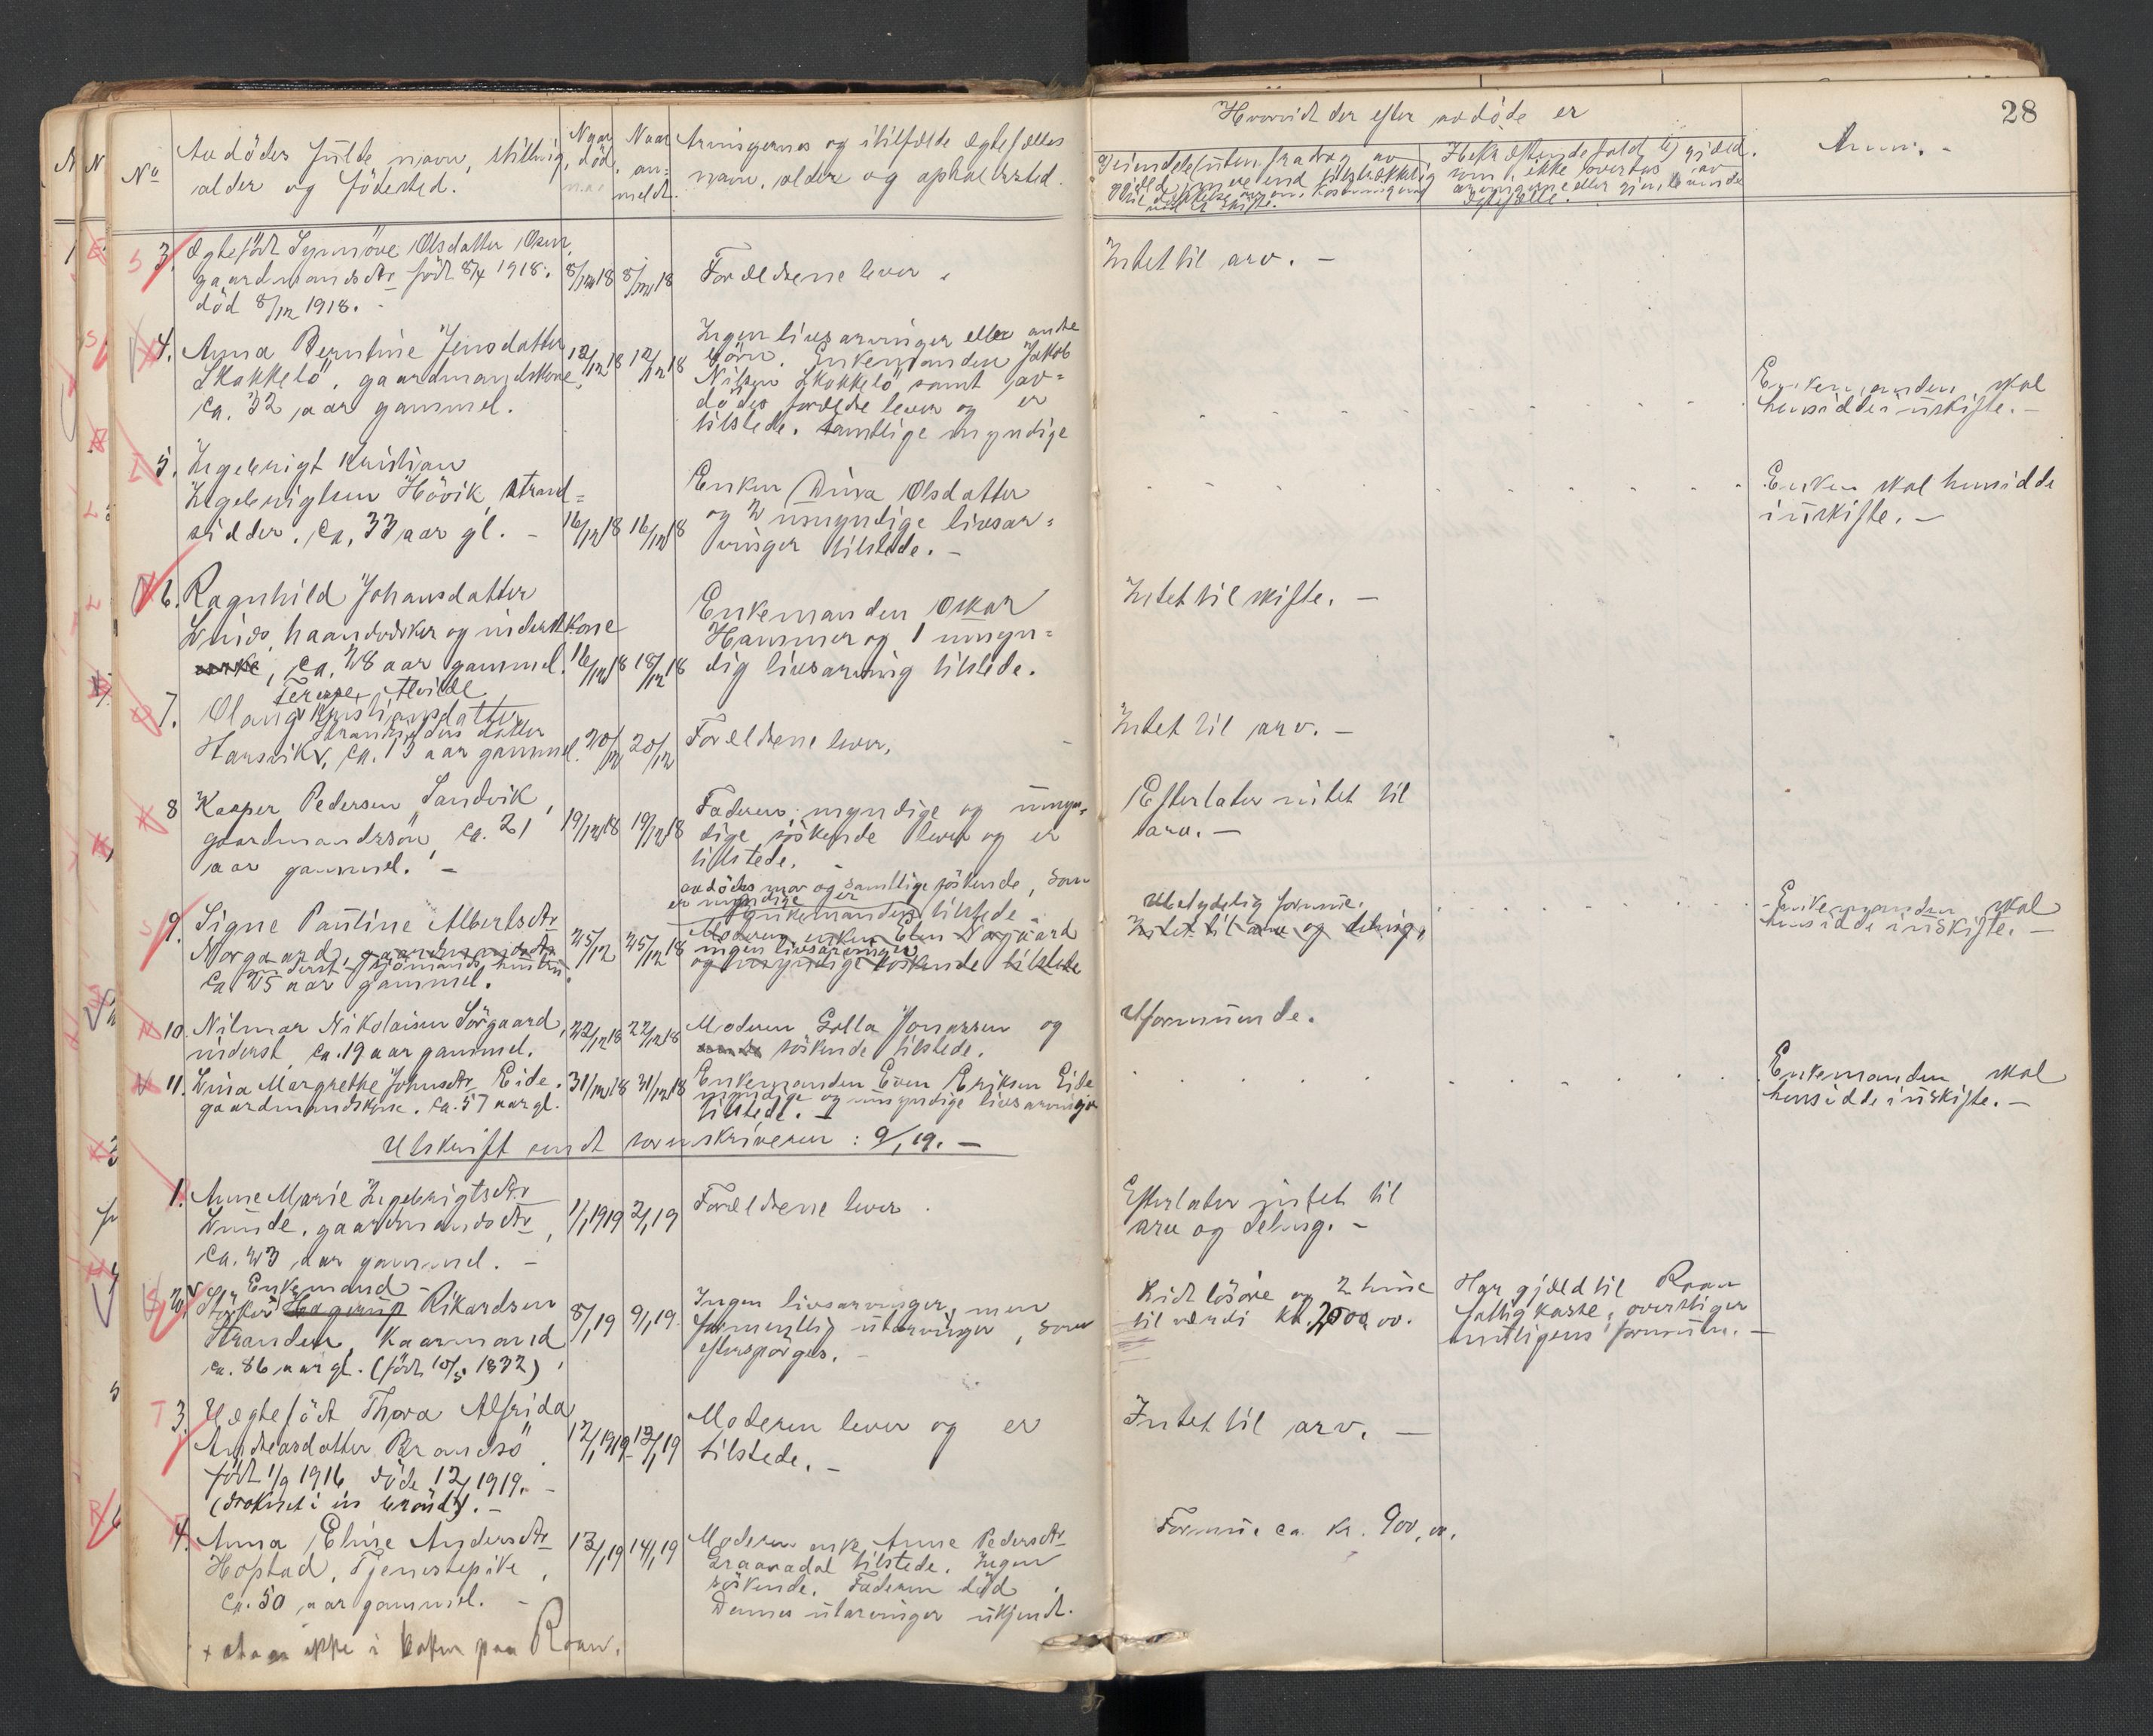 28
No
Avdödes fulde navn, stilling,
alder og födested.
Naar
död.
Naar
an-
meldt.
Arvingernes og i tilfælde ægtefælles
navn, alder og opholdssted.
Hvorvidt der efter avdöde er
Anm. -
S 3. Ægtefödt Synnöve Olsdatter Osen,
gaardmandsdtr födt 8/4 1918.
död 8/12 1918. -
8/12 18
8/12 18
Forældrene lever.
Intet til arv. -
4. Anna Berntine Jensdatter
Skakkelö, gaardmandskone,
ca. 32 aar gammel.
12/12 18
12/12 18
Ingen livsarvinger eller andre
börn. Enkemanden Jakob
Nilsen Skakkelö samt av=
dödes forældre lever og er
tilstede. Samtlige myndige
Enkemanden skal
hensidde i uskifte. -
5. Ingebrigt Kristian
Ingebrigtsen Hövik, strand=
sidder, ca. 33 aar gl. -
16/12 18
16/12 18
Enken Dina Olsdatter
og 2 umyndige livsar=
vinger tilstede. -
Enken skal hensidde
i uskifte. -
6. Ragnhild Johansdatter
haandverker og inderstkone
ca. 28 aar gammel.
16/12 18
18/12 18
Enkemanden Oskar
Hammer og 1 umyn=
dig livsarving tilstede.
Intet til skifte. -
7. Olaug Kristiansdatter
Harsvik, ca. 13 aar gammel.
20/12
20/12
Forældrene lever.
Intet til arv. -
8 Kasper Pedersen Sandvik,
gaardmandssön, ca. 21
aar gammel. -
19/12 18
19/12 18
Faderen, myndige og umyn=
dige söskende lever og er
tilstede.
Efterlater intet til
arv. -
9. Signe Pauline Albertsdtr
Norgaard, gaardmandsdtr
ca. 25 aar gammel.
25/12
25/12 18
avdödes mor og samtlige söskende, som
er myndige er
Enkemanden tilstede
Moderen enken Elen Norgaard
ingen livsarvinger
og umyndige söskende tilstede
Ubetydelig formue.
Intet til arv og deling.
Enkemanden skal
hensidde i uskifte. -
10. Nilmar Nikolaisen Sörgaard,
inderst, ca. 19 aar gammel.
22/12 18
22/12 18
Moderen Golla Jonassen og
söskende tilstede.
Uformuende.
11. Lina Margrethe Johnsdtr Eide.
gaardmandskone. ca. 57 aar gl.
31/12 18
31/12 18
Enkemanden Even Eriksen Eide
myndige og umyndige livsarvinger
tilstede. -
Enkemanden skal
hensidde i uskifte. -
Utskrift sendt sorenskriveren : 9/1 19. -
1. Anne Marie Ingebrigtsdtr
gaardmandsdtr,
ca. 23 aar gammel. -
1/1 1919
2/1 19
Forældrene lever.
Efterlater intet til
arv og deling. -
2. Enkemand
Hagerup Rikardsen
Stranden, kaarmand
ca. 86 aar gl. (födt 10/5 1832).
8/1 19
9/1 19.
Ingen livsarvinger, men
formentlig utarvinger, som
efterspörges. -
Lidt lösöre og 2 huse
til værdi kr. 200,00.
Har gjæld til Roan
fattigkasse, overstiger
antagelig formuen. -
T 3. Uegtefödt Thora Alfrida
Andreasdatter Brandsö
födt 1/9 1916, döde 12/1 1919. -
(druknet i en brönd). -
12/1 1919
13/1 19
Moderen lever og er
tilstede. -
Intet til arv. -
4. Anna Eline Andersdtr
Hopstad, Tjenestepike,
ca. 50 aar gammel. -
13/1 19
14/1 19
Moderen enke Anne Pedersdtr
tilstede. Ingen
söskende. Faderen död.
Dennes utarvinger ukjendt.
Formue ca. kr. 900,00.